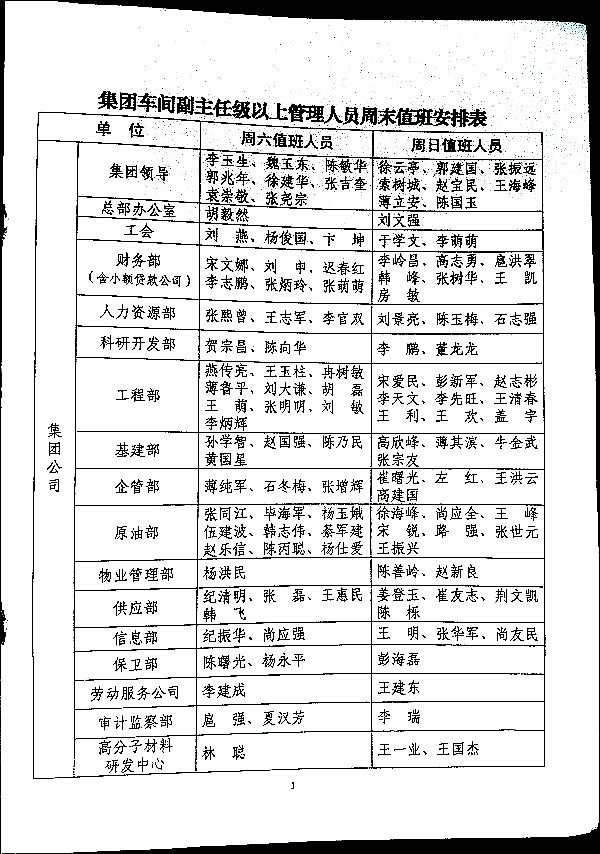 集团车间副主任级以上管理人员周末值班安排表
单 位 周六值班人员 周日值班人员
集团公司
集团领导
李玉生、魏玉东、陈敏华
郭兆年、徐建华、张吉奎
袁崇敬、张尧宗
徐云亭、郭建国、张振远
索树城、赵宝民、王海峰
薄立安、陈国玉
总部办公室 胡毅然 刘文强
工会 刘 燕、杨俊国、卞 坤 于学文、李萌萌
财务部
(含小额贷款公司)
宋文娜、刘 申、迟春红
李志鹏、张炳玲、张萌萌
李岭昌、高志勇、扈洪翠
韩 峰、张树华、王 凯
房 敏
人力资源部 张熙曾、王志军、李官双 刘景亮、陈玉梅、石志强
科研开发部 贺宗昌、陈向华 李 鹏、董龙龙
工程部
燕传亮、王玉柱、冉树敏
薄鲁平、刘大谦、胡 磊
王 萌、张明明、刘 敏
李炳辉
宋爱民、彭新军、赵志彬
李天文、李先旺、王清春
王 利、王 欢、盖 宇
基建部
孙学智、赵国强、陈乃民
黄国星
高欣峰、薄其滨、牛金武
张宗友
企管部 薄纯军、石冬梅、张增辉
崔曙光、左 红、王洪云
高建国
原油部
张同江、毕海军、杨玉娥
伍建波、韩志伟、綦军建
赵乐信、陈丙聪、杨仕爱
徐海峰、尚应全、王 峰
宋 锐、路 强、张世元
王振兴
物业管理部 杨洪民 陈善岭、赵新良
供应部
纪清明、张 磊、王惠民
韩 飞
姜登玉、崔友志、荆文凯
陈 栎
信息部 纪振华、尚应强 王 明、张华军、尚友民
保卫部 陈曙光、杨永平 彭海磊
劳动服务公司 李建成 王建东
审计监察部 扈 强、夏汉芳 李 瑞
高分子材料
研发中心
林 聪 王一业、王国杰
1